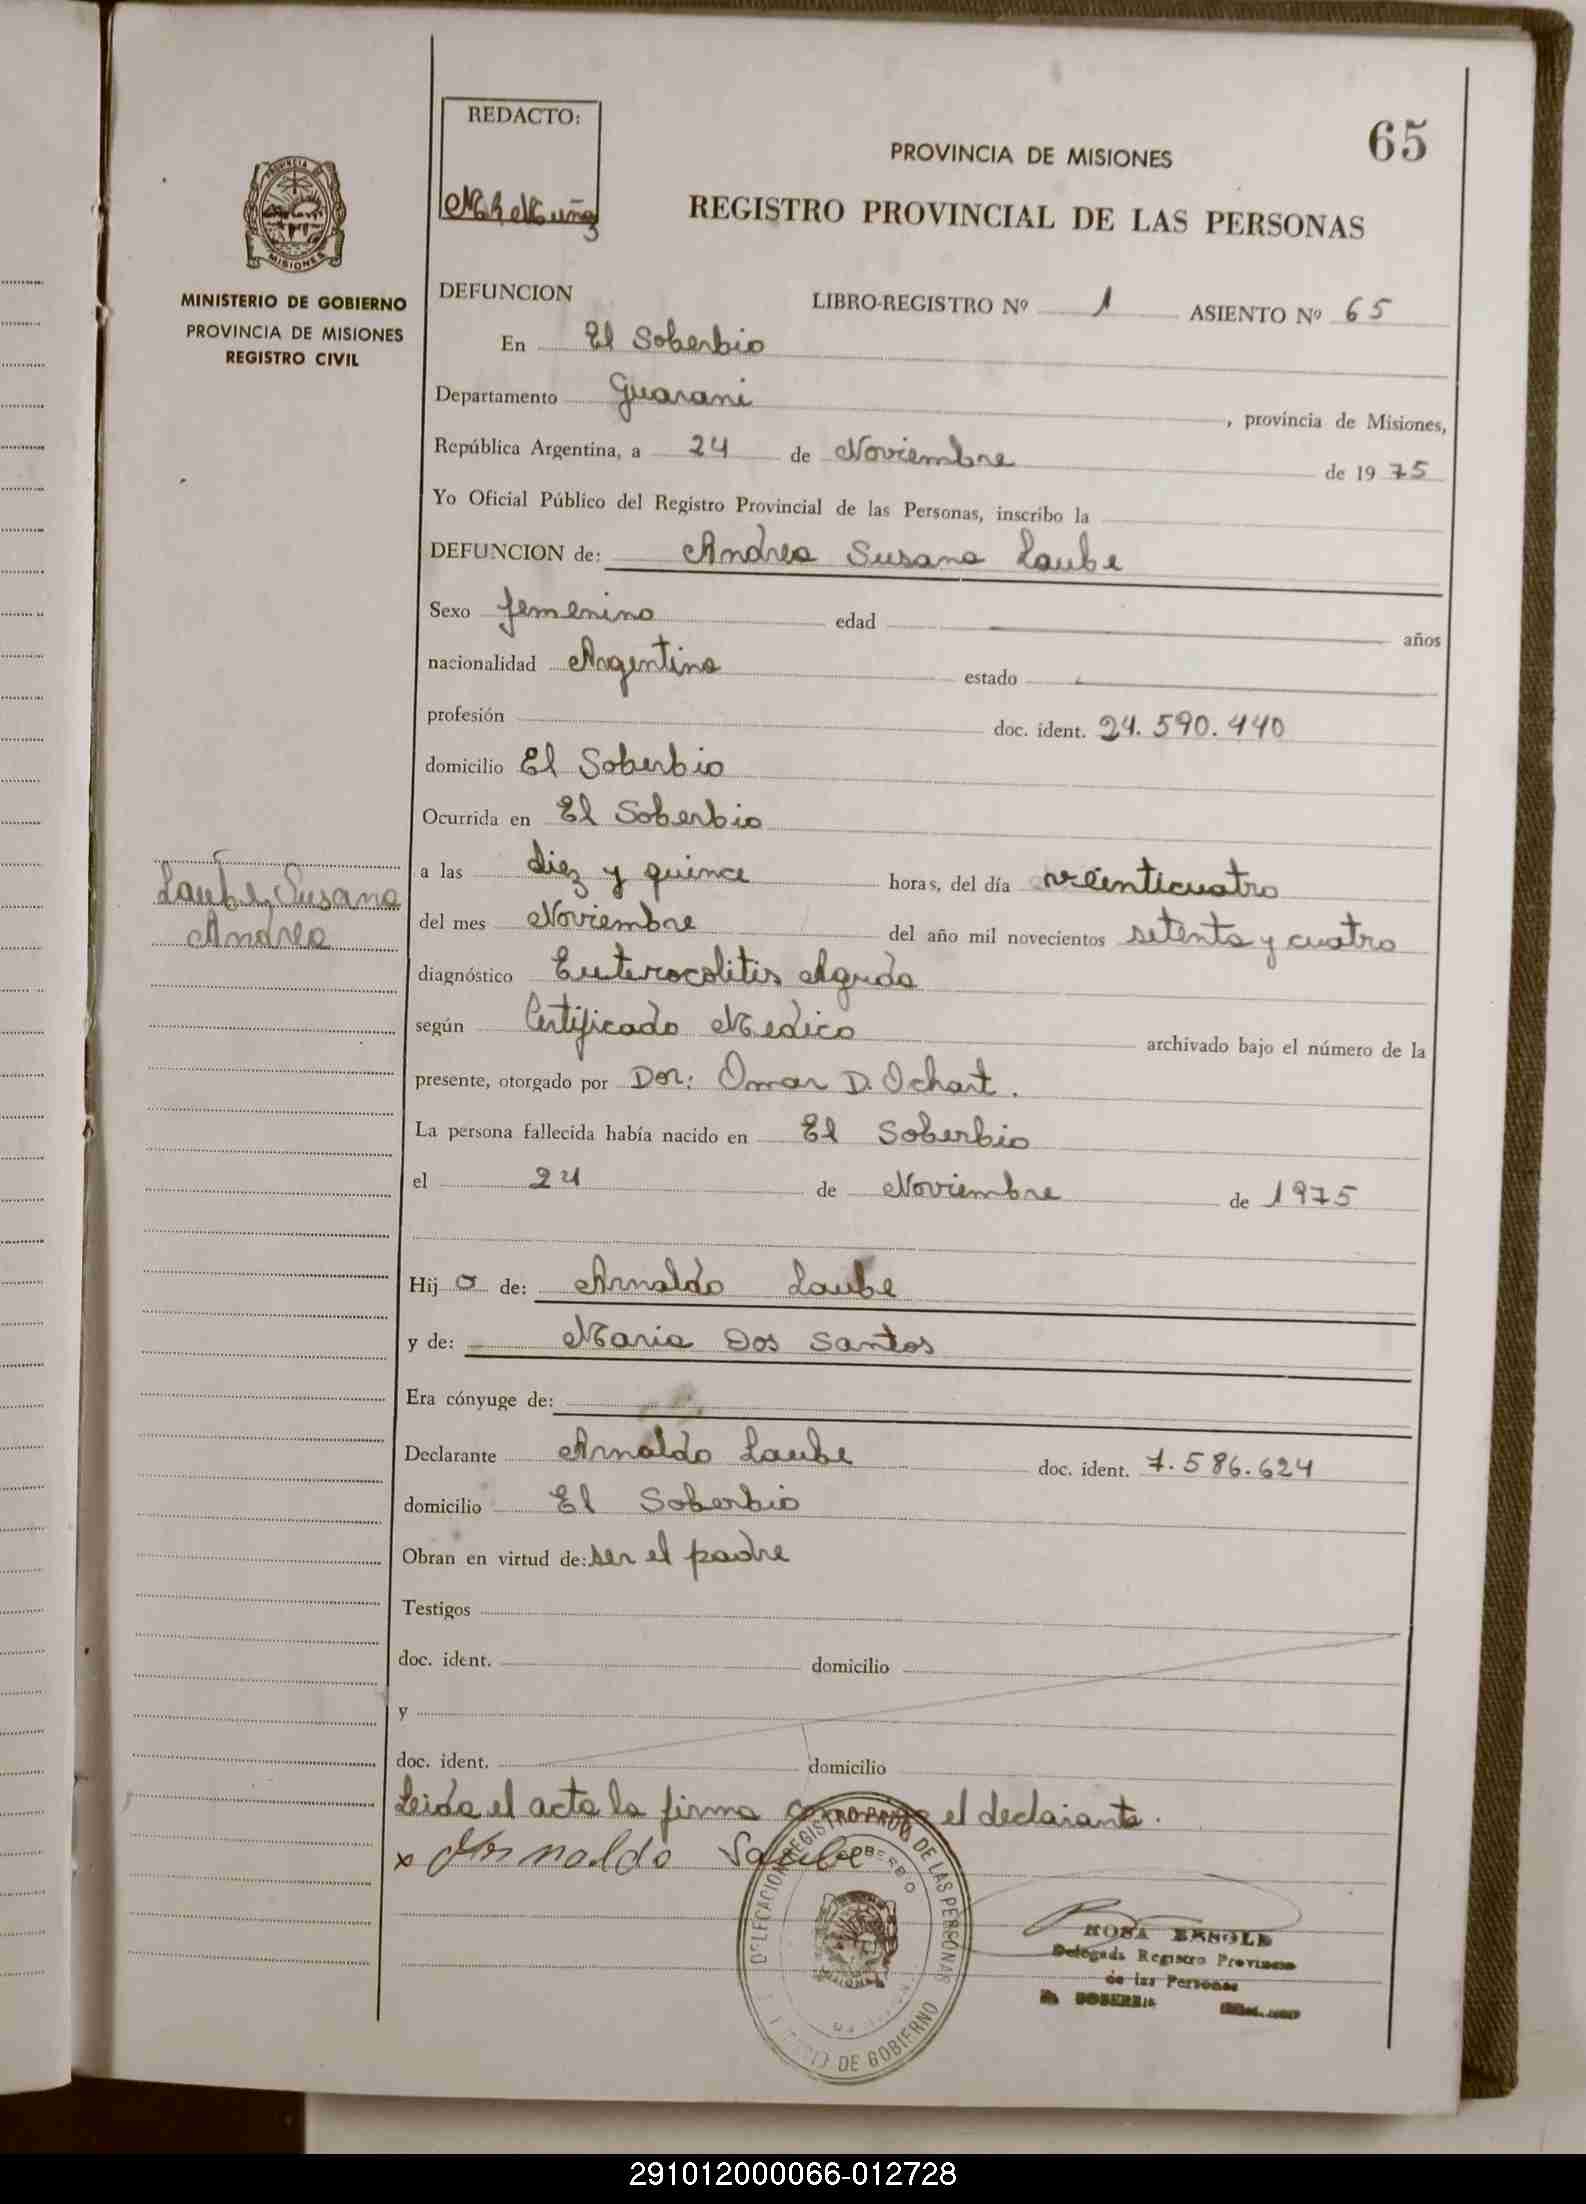 REDACTO:
65
PROVINCIA DE MISIONES
REGISTRO PROVINCIAL DE LAS PERSONAS
PROVINCIA DE
MISIONES
MINISTERIO DE GOBIERNO
PROVINCIA DE MISIONES
REGISTRO CIVIL
DEFUNCION LIBRO-REGISTRO Nº 1 ASIENTO Nº 65
En El Soberbio
Departamento Guarani, provincia de Misiones,
República Argentina, a 24 de Noviembre de 1975
Yo Oficial Público del Registro Provincial de las Personas, inscribo la
DEFUNCION de: Andrea Susana Laube
Sexo femenino edad años
nacionalidad Argentina estado
profesión doc. ident. 24.590.440
domicilio El Soberbio
Ocurrida en El Soberbio
a las diez y quince horas, del día veinticuatro
Laube, Susana
Andrea
del mes Noviembre del año mil novecientos setenta y cuatro
diagnóstico Enterocolitis Aguda
según Certificado Medico archivado bajo el número de la
presente, otorgado por Dor: Omar D. Ochart.
La persona fallecida había nacido en El Soberbio
el 24 de Noviembre de 1975
Hij a de: Arnaldo Laube
y de: Maria Dos Santos
Era cónyuge de:
Declarante Arnaldo Laube doc. ident. 7.586.624
domicilio El Soberbio
Obran en virtud de: ser el padre
Testigos
doc. ident. domicilio
y
doc. ident. domicilio
Leida el acta la firma el declarante.
x Arnaldo Laube
DELEGACION REGISTRO PROV. DE LAS PERSONAS
DE GOBIERNO
ROSA
Delegada Registro Provincia
de las Personas
SOBERBIO
291012000066-012728